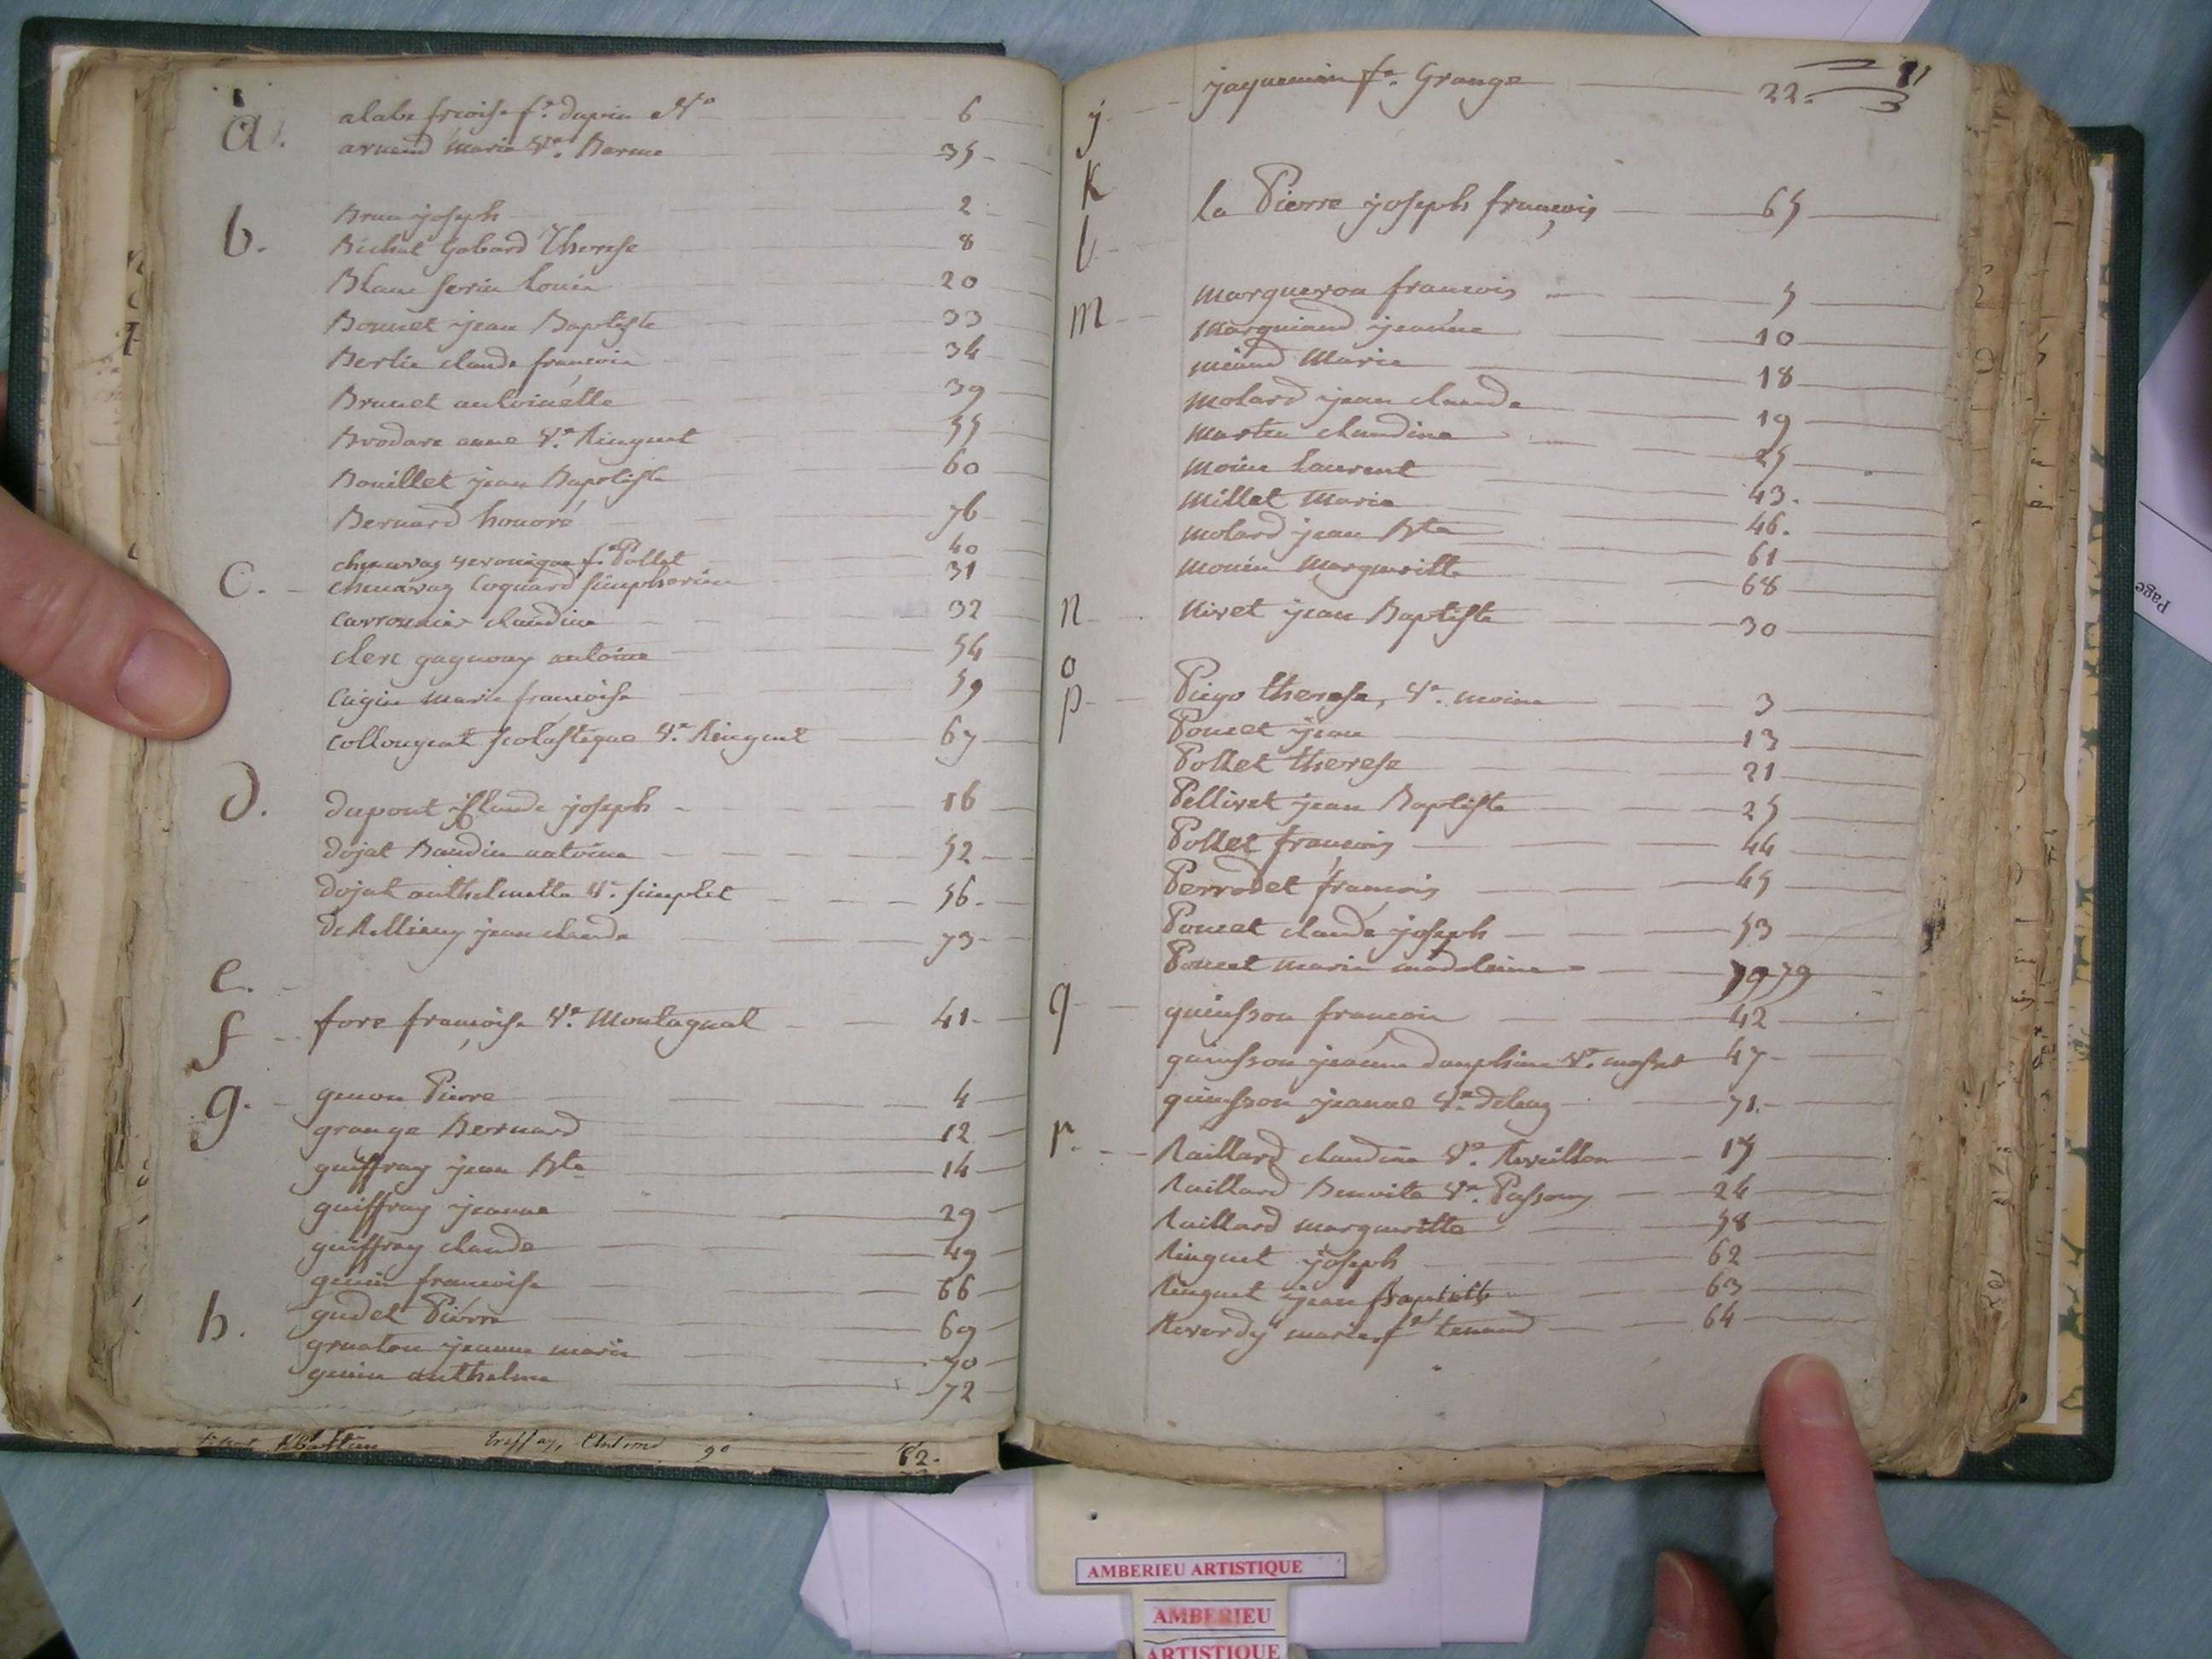 a. alabe frçoise fe. dupin No 6
arnend Marie Ve. Barme 35
b. Brun joseph 2
Bichat Gobard Therese 8
Blanc serin Louis 20
Bonnet jean Baptiste 33
Berlie claude francois 34
Brunet antoinette 39
Brodare anne Ve. Ringuet 55
Bouillet jean Baptiste 60
Bernard honoré 76
chenavaz veronique fe. Pollet 40
C. chenavaz Coquard simphorien 31
carronnier claudine 32
clerc gagnoux antoine 54
Cugin marie francoise 59
collongeat scolastique Ve. Ringuet 67
D. dupont Claude joseph 16
dojat Baudin antoine 52
dojat anthelmette Ve. simplet 56
jean claude 73
e.
f fore françoise Ve. Montagnat 41
g. genou Pierre 4
grange Bernard 12
guiffray jean Bte 14
guiffray jeanne 29
guiffray claude 49
genin francoise 66
h. gudet Pierre 69
gruaton jeanne marie 70
genin anthelme 72
82.
j jaquemin fe. Grange 22.
K
la Pierre joseph françois 65
l
m margueron francois 5
marguiand jeanne 10
miand Marie 18
molard jean claude 19
martin claudine 25
moine Laurent 43.
millet Marie 46.
molard jean Bte 61
monin margueritte 68
n Nivet jean Baptiste 30
o
p Piego therese, Ve. moine 3
Poncet jean 13
Pollet therese 21
Pellivet jean Baptiste 25
Pollet françois 44
Perrodet francois 45
Poncet claude joseph 53
Poncet marie madeleine 79 79
q quinsson francois 42
quinsson jeanne dauphine Ve. mosset 47
quinsson jeanne Ve. 71.
r. Raillard claudine Ve. Reveillon 17
Raillard Benoite Ve. 24
Raillard margueritte 58
Ringuet joseph 62
Ringuet jean Baptiste 63
Reverdy marie fe. tenand 64
Page
AMBERIEU ARTISTIQUE
AMBERIEU
ARTISTIQUE